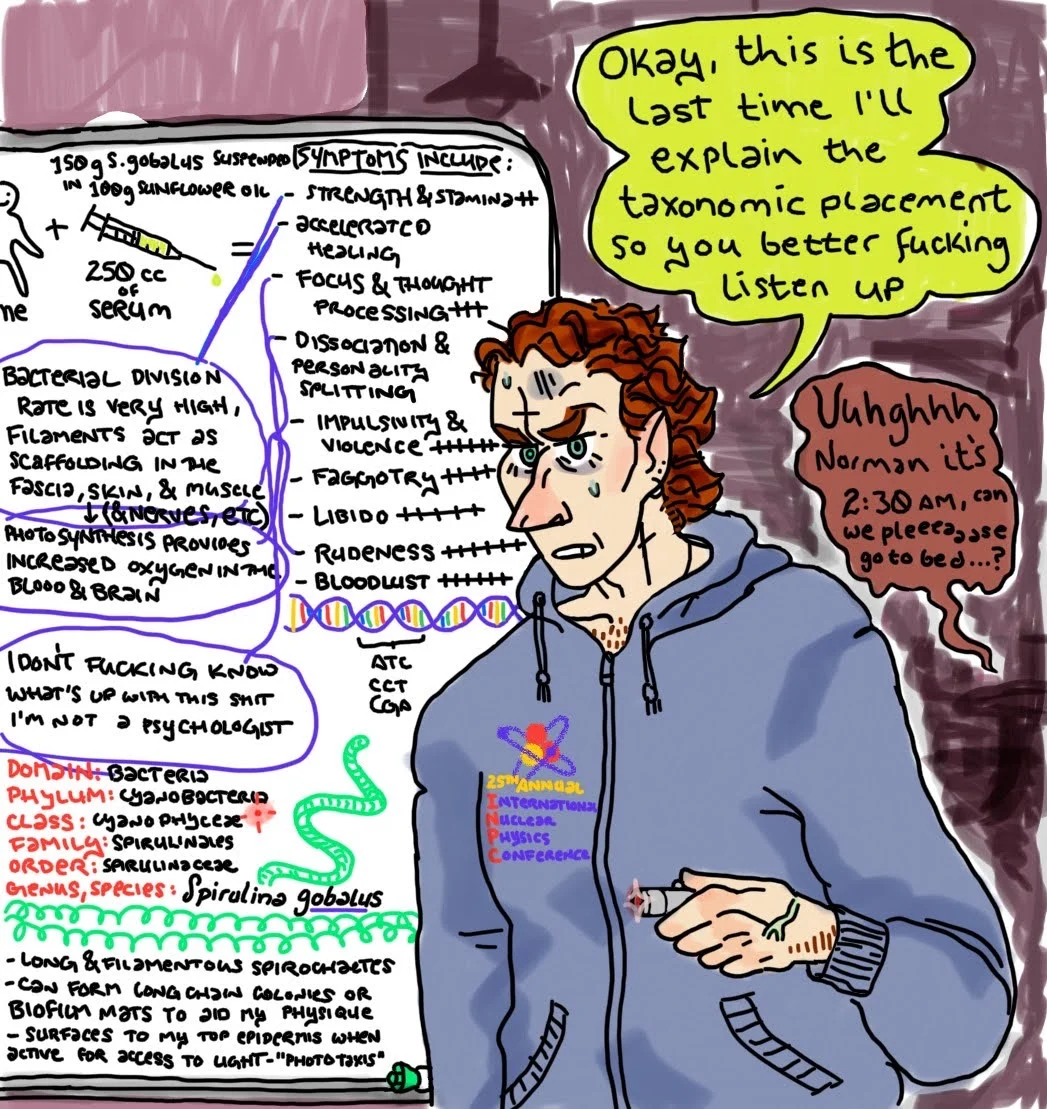 Okay, this is the
last time I'll
explain the
taxonomic placement
so you better fucking
listen up
Uuhghhh
Norman it's
2:30 AM, can
we pleeeaaase
go to bed...?
150g S. gobalus suspended
in 100g sunflower oil
+
=
250 cc
of
serum
me
Symptoms include:
- Strength & stamina ++
- accelerated
healing
- Focus & thought
processing +++
- Dissociation &
personality
splitting
- Impulsivity &
violence ++++++
- Faggotry ++++
- Libido +++++
- Rudeness ++++++
- Bloodlust +++++
ATC
CCT
CGA
Bacterial division
rate is very high,
filaments act as
scaffolding in the
fascia, skin, & muscle
↓ (& nerves, etc)
Photosynthesis provides
increased oxygen in the
blood & brain
I don't fucking know
what's up with this shit
I'm not a psychologist
Domain: Bacteria
Phylum: Cyanobacteria
Class: Cyanophyceae
Family: Spirulinales
Order: Spirulinaceae
Genus, species: Spirulina gobalus
- Long & filamentous spirochaetes
- Can form long chain colonies or
biofilm mats to aid my physique
- Surfaces to my top epidermis when
active for access to light - "phototaxis"
25th Annual
International
Nuclear
Physics
Conference